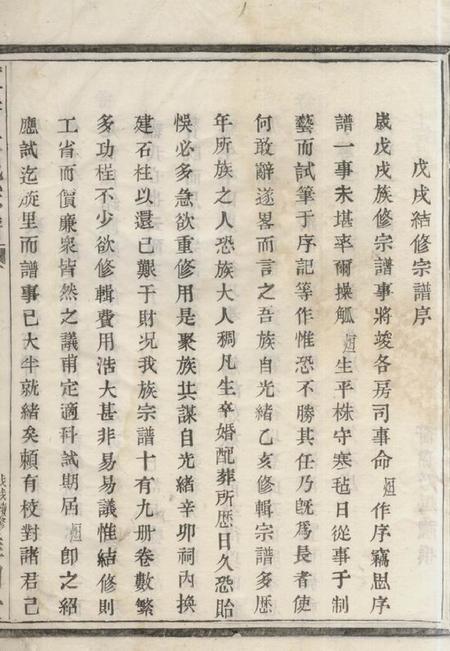 戊戌結修宗譜序
歲戊戌族修宗譜事將竣各房司事命烜作序竊思序
譜一事未堪率爾操觚烜生平株守寒毡日從事于制
藝而試筆于序記等作惟恐不勝其任乃旣爲長者使
何敢辭遂畧而言之吾族自光緒乙亥修輯宗譜多歷
年所族之人恐族大人稠凡生卒婚配葬所歴日久恐貽
悞必多急欲重修用是聚族共謀自光緒辛卯祠內換
建石柱以還已艱于財况我族宗譜十有九册卷數繁
多功程不少欲修輯費用浩大甚非易易議惟結修則
工省而價廉衆皆然之議甫定適科試期屆烜卽之紹
應試迄旋里而譜事已大半就緒矣頼有校對諸君已
戊戌續修